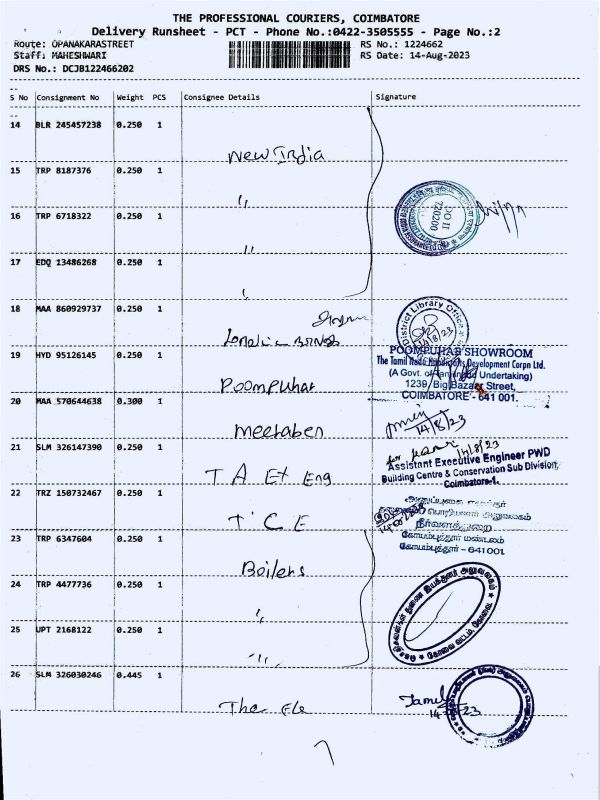 THE PROFESSIONAL COURIERS, COIMBATORE
Delivery Runsheet - PCT - Phone No.:0422-3505555 - Page No.:2
Route: OPANAKARASTREET RS No.: 1224662
Staff: MAHESHWARI RS Date: 14-Aug-2023
DRS No.: DCJB122466202
S No Consignment No Weight PCS Consignee Details Signature
14 BLR 245457238 0.250 1
New India
15 TRP 8187376 0.250 1
"
16 TRP 6718322 0.250 1
"
17 EDQ 13486268 0.250 1
18 MAA 860929737 0.250 1
District Library Office
14/8/23
19 HYD 95126145 0.250 1
POOMPUHAR SHOWROOM
The Tamil Nadu Handicrafts Development Corpn Ltd.
(A Govt. of Tamilnadu Undertaking)
Poompuhar 1239, Big Bazaar Street,
20 MAA 570644638 0.300 1 COIMBATORE - 641 001.
Meetaben 14/8/23
21 SLM 326147390 0.250 1 14/8/23
Assistant Executive Engineer PWD
Building Centre & Conservation Sub Division,
T A Ex Eng Coimbatore-1.
22 TRZ 150732467 0.250 1
T C E நீர்வளத்துறை
23 TRP 6347604 0.250 1 கோயம்புத்தூர் மண்டலம்
கோயம்புத்தூர் - 641001
Boilers
24 TRP 4477736 0.250 1
"
25 UPT 2168122 0.250 1
"
26 SLM 326030246 0.445 1
The Ele